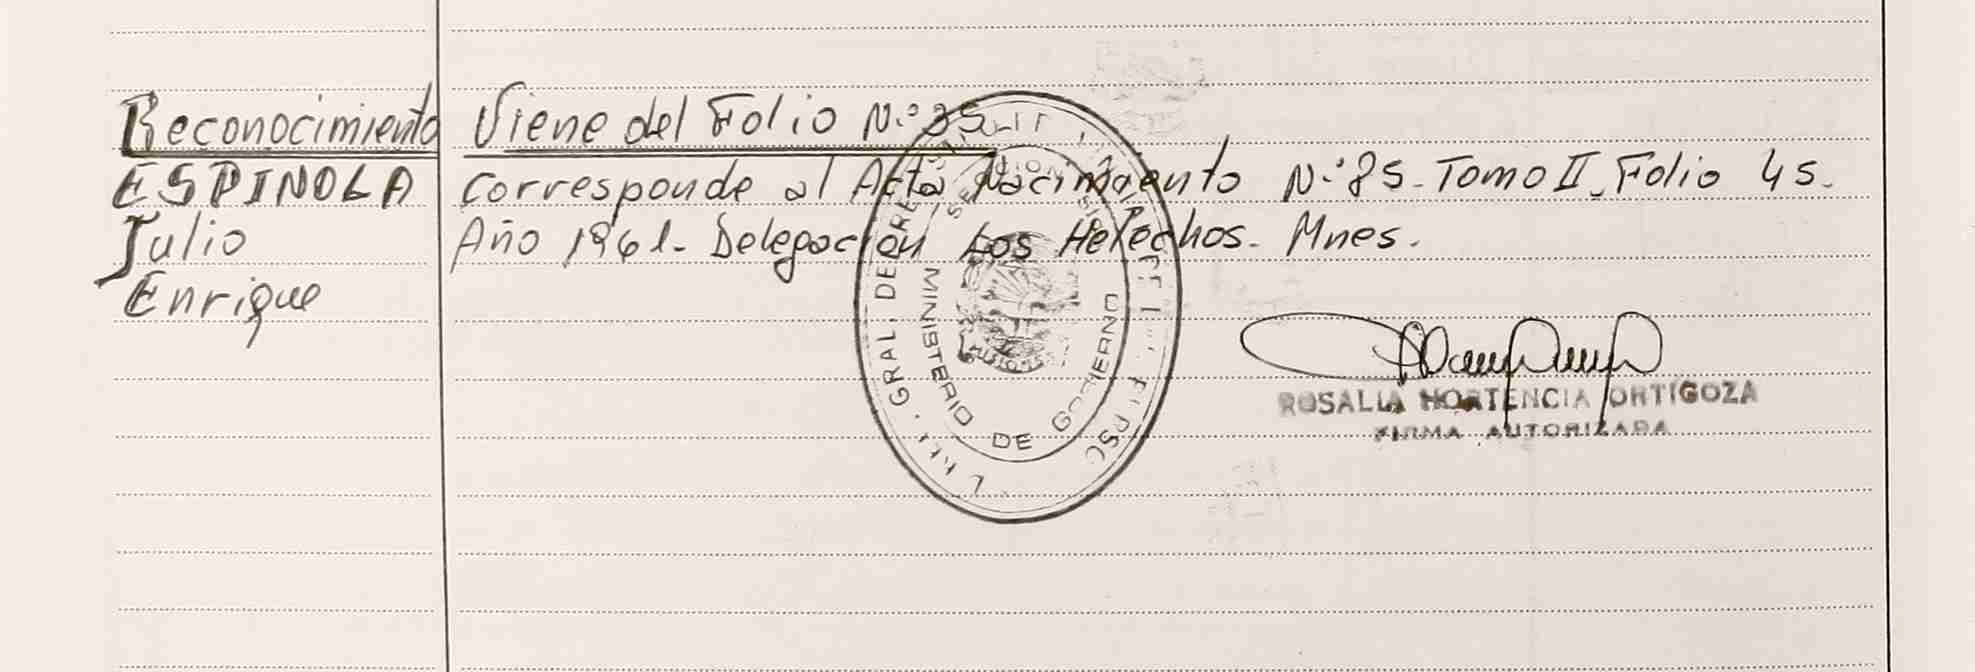 Reconocimiento
ESPINOLA
Julio
Enrique
Viene del Folio N.º 35
Corresponde al Acta Nacimiento N.º 85. Tomo II. Folio 45.
Año 1961. Delegación Los Helechos. Mnes.
GRAL. DE RE
MINISTERIO DE GOBIERNO
ROSALIA HORTENCIA ORTIGOZA
FIRMA AUTORIZADA